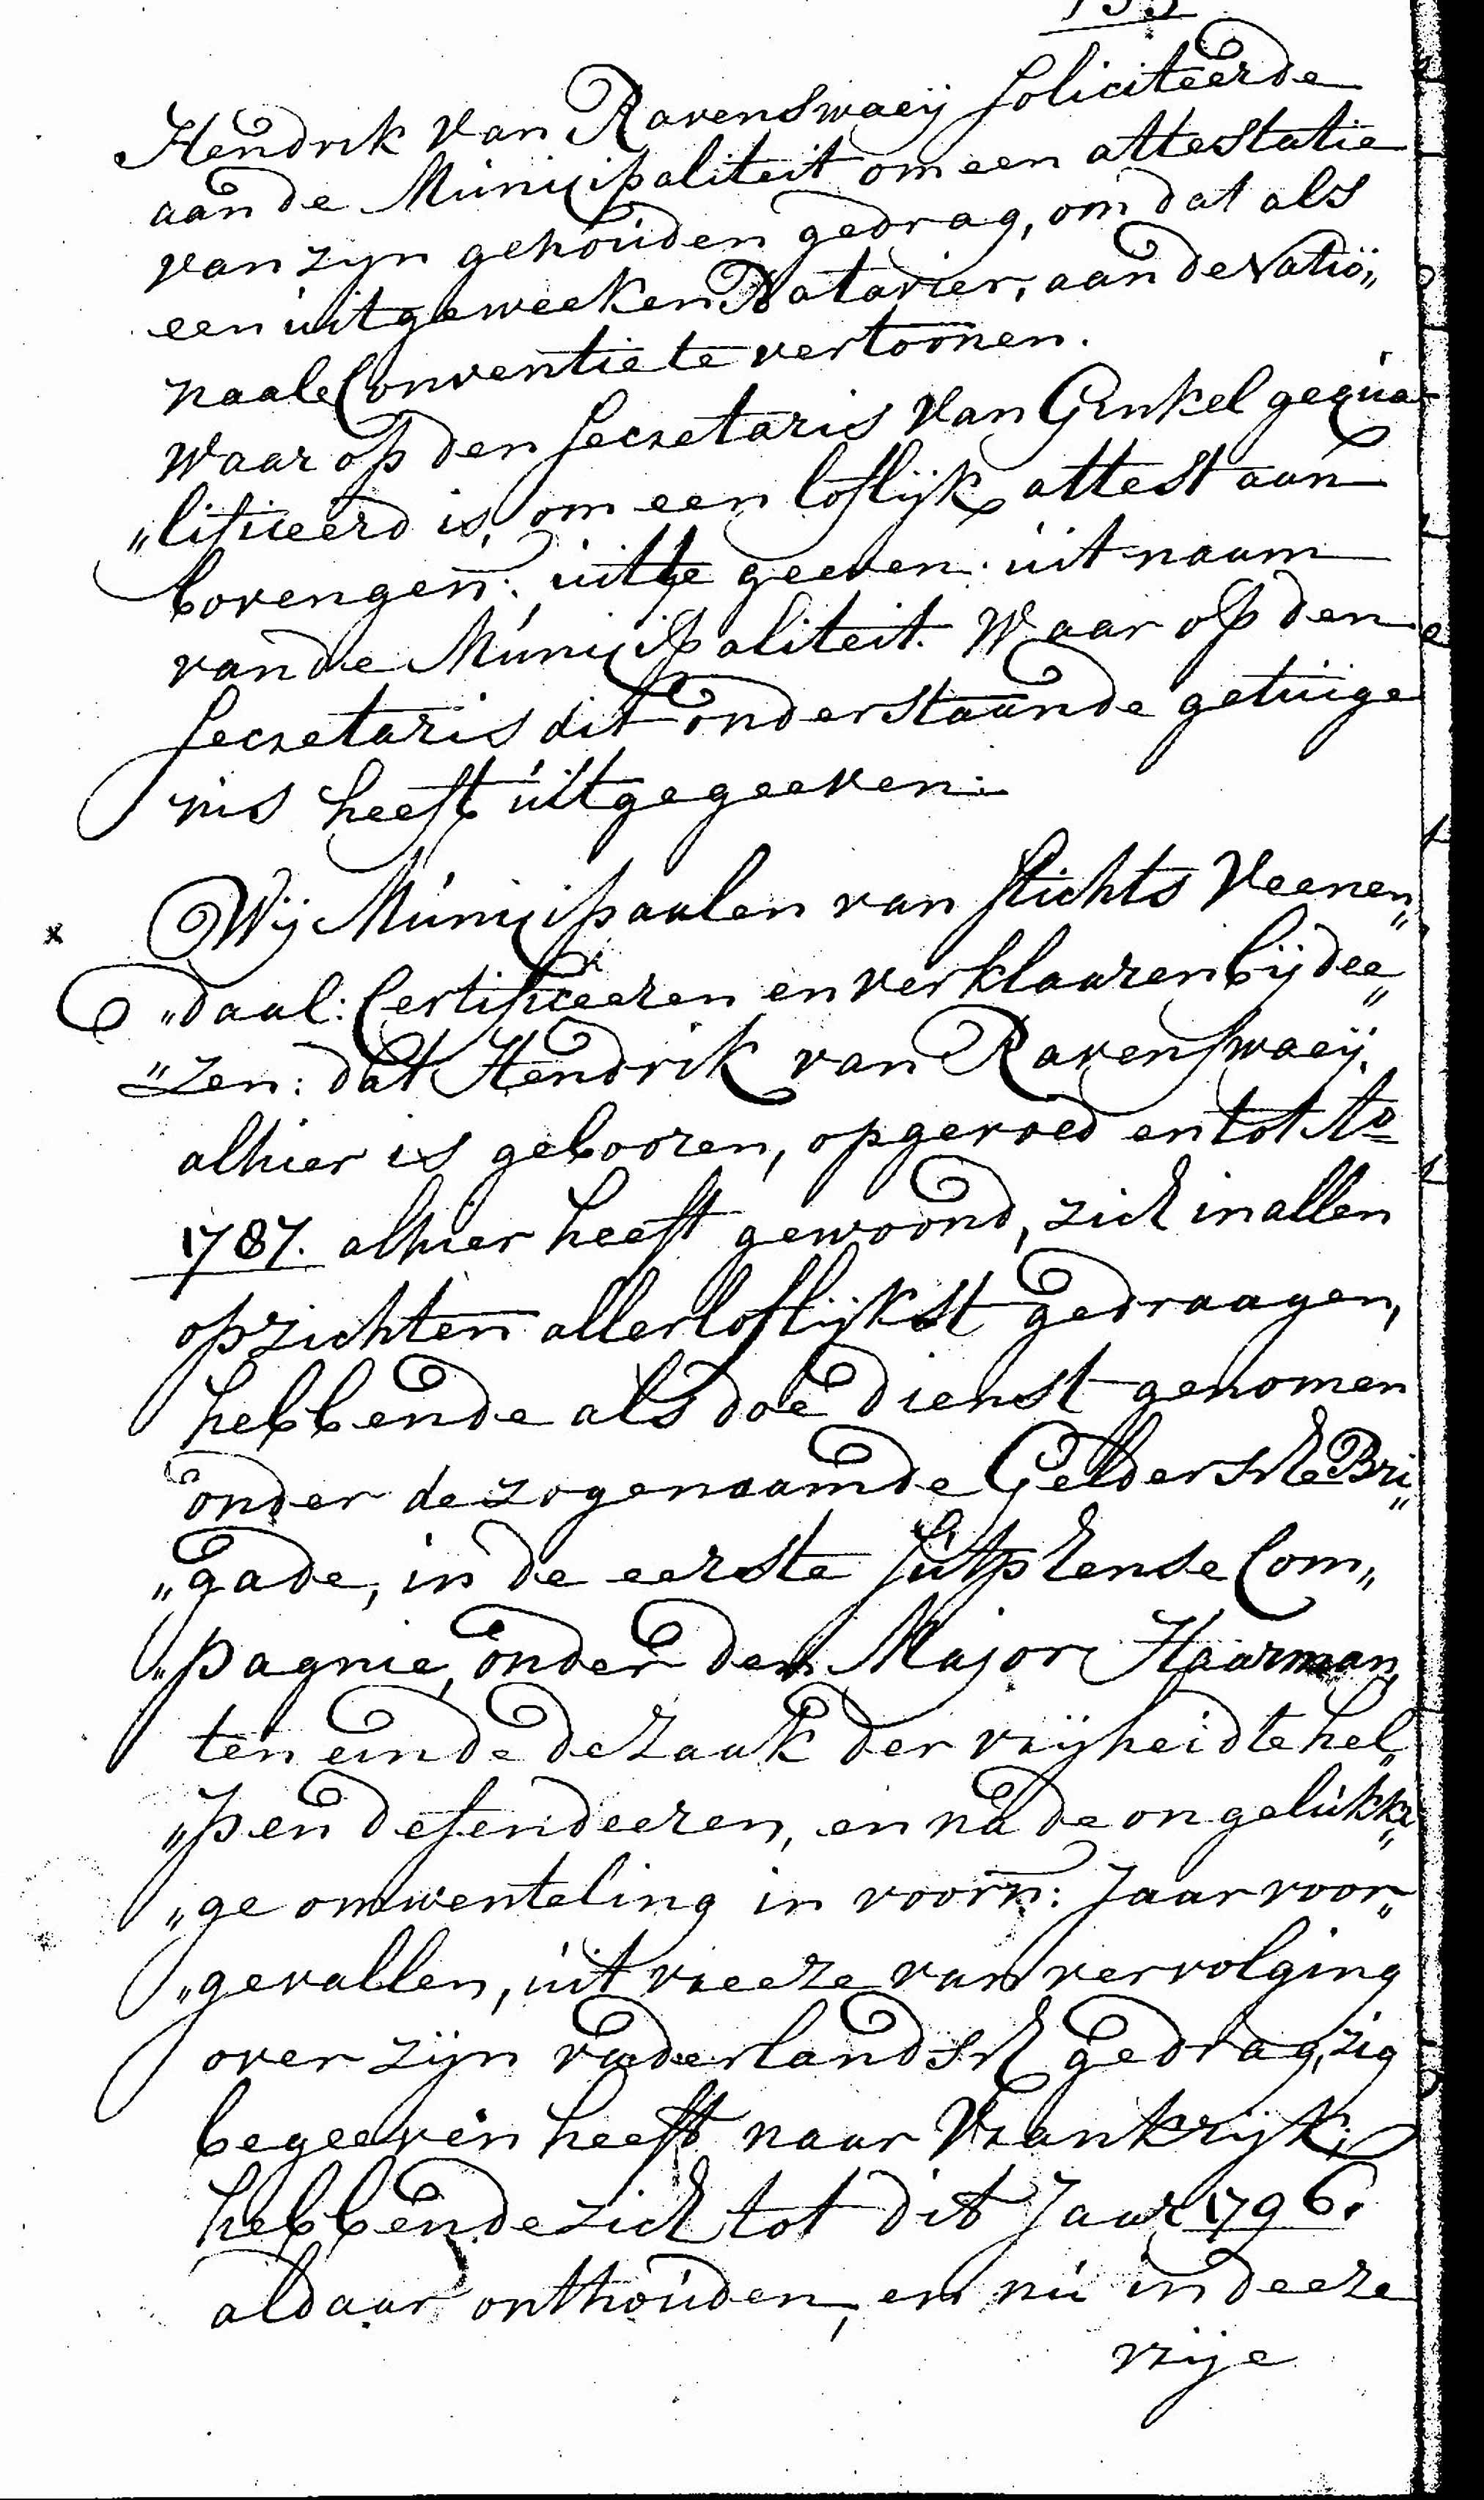 Hendrik van Ravenswaeij soliciteerde
aan de Municipaliteit om een attestatie
van zyn gehouden gedrag, om dat als
een uitgeweeken Batavier, aan de Natio„
naale Conventie te vertoonen.
Waar op den Secretaris van Ginkel gequa-
„lificeerd is, om een loflijk attest aan
bovengen: uit te geeven. uit naam
van de Municipaliteit. Waar op den
Secretaris dit onderstaande getuige
nis heeft uitgegeeven.
x Wij Municipaalen van Stichts Veenen„
„daal: Certificeeren en verklaaren bij dee„
„zen: dat Hendrik van Ravenswaeij.
alhier is gebooren, opgevoed en tot Ao
1787. alhier heeft gewoond, zich in allen
opzichten allerloflijkst gedraagen,
hebbende als doe dienst genomen
onder de zogenaamde Geldersche Bri„
„gade, in de eerste Sutphense Com„
„pagnie, onder den Major Haarman,
ten einde de zaak der vrijheid te hel„
„pen defendeeren, en na de ongelukki„
„ge omwenteling in voorn: Jaar voor„
„gevallen, uit vreeze van vervolging
over zijn vaderlandsch gedrag, zig
begeeven heeft naar Vrankrijk;
hebbende zich tot dit Jaar 1796.
aldaar onthouden, en nu in deeze
vrije